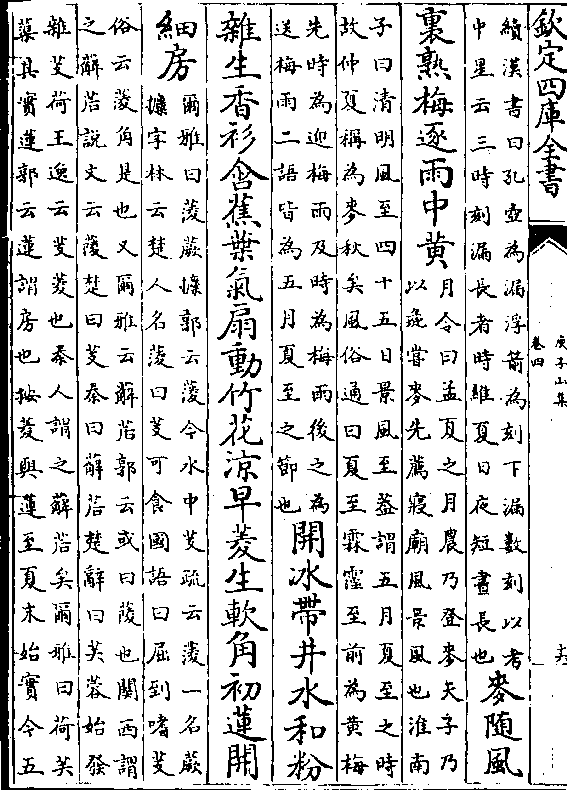 欽定四庫全書
庾子山集
卷四
續漢書曰孔壺為漏浮箭為刻下漏數刻以考
中星云三時刻漏長者時維夏日夜短晝長也
麥隨風
裏熟梅逐雨中黃
月令曰孟夏之月農乃登麥天子乃
以彘嘗麥先薦寢廟風景風也淮南
子曰清明風至四十五日景風至蓋謂五月夏至之時
故仲夏稱為麥秋矣風俗通曰夏至霖霪至前為黃梅
先時為迎梅雨及時為梅雨後之為
送梅雨二語皆為五月夏至之節也
開冰帶井水和粉
雜生香衫含蕉葉氣扇動竹花涼早菱生軟角初蓮開
細房
爾雅曰蔆蕨攗郭云蔆今水中芰疏云蔆一名蕨
攗字林云楚人名蔆曰芰可食國語曰屈到嗜芰
俗云蔆角是也又爾雅云薢茩郭云或曰蔆也關西謂
之薢茩說文云蔆楚曰芰秦曰薢茩楚辭曰芙蓉始發
雜芰荷王逸云芰菱也秦人謂之薢茩矣爾雅曰荷芙
蕖其實蓮郭云蓮謂房也按菱與蓮至夏末始實今五